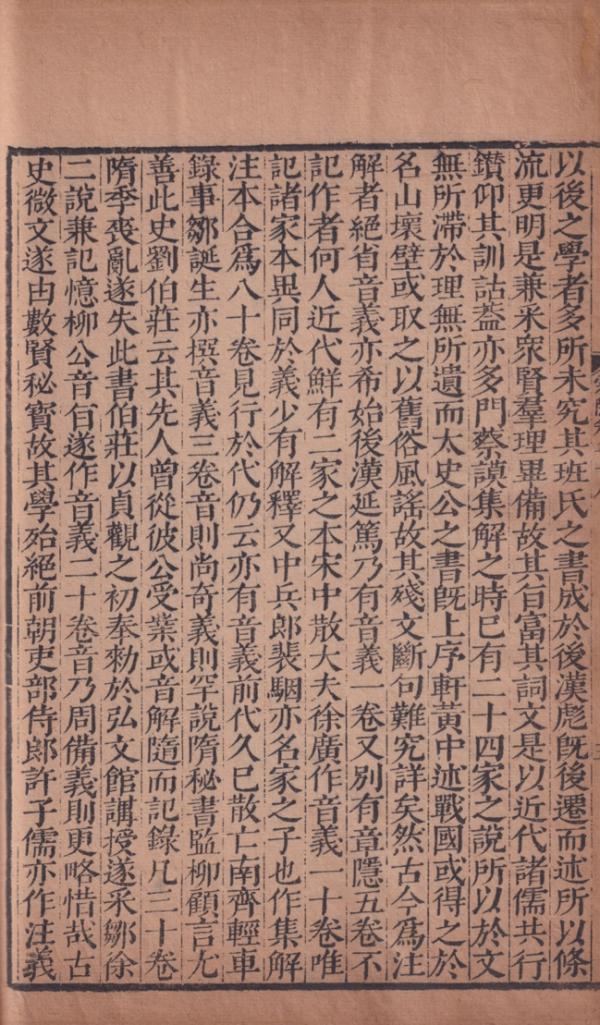 以後之學者多所未究其班氏之書成於後漢彪旣後遷而述所以條
流更明是兼采衆賢羣理畢備故其旨富其詞文是以近代諸儒共行
鑽仰其訓詁葢亦多門蔡謨集解之時已有二十四家之說所以於文
無所滯於理無所遺而太史公之書旣上序軒黃中述戰國或得之於
名山壞壁或取之以舊俗風謠故其殘文斷句難究詳矣然古今爲注
解者絕省音義亦希始後漢延篤乃有音義一卷又別有章隱五卷不
記作者何人近代鮮有二家之本宋中散大夫徐廣作音義一十卷唯
記諸家本異同於義少有解釋又中兵郎裴駰亦名家之子也作集解
注本合爲八十卷見行於代仍云亦有音義前代久已散亡南齊輕車
錄事鄒誕生亦撰音義三卷音則尚奇義則罕說隋秘書監柳顧言尤
善此史劉伯莊云其先人曾從彼公受業或音解隨而記錄凡三十卷
隋季喪亂遂失此書伯莊以貞觀之初奉勑於弘文館講授遂采鄒徐
二說兼記憶柳公音旨遂作音義二十卷音乃周備義則更略惜哉古
史微文遂由數賢秘寶故其學殆絕前朝吏部侍郎許子儒亦作注義